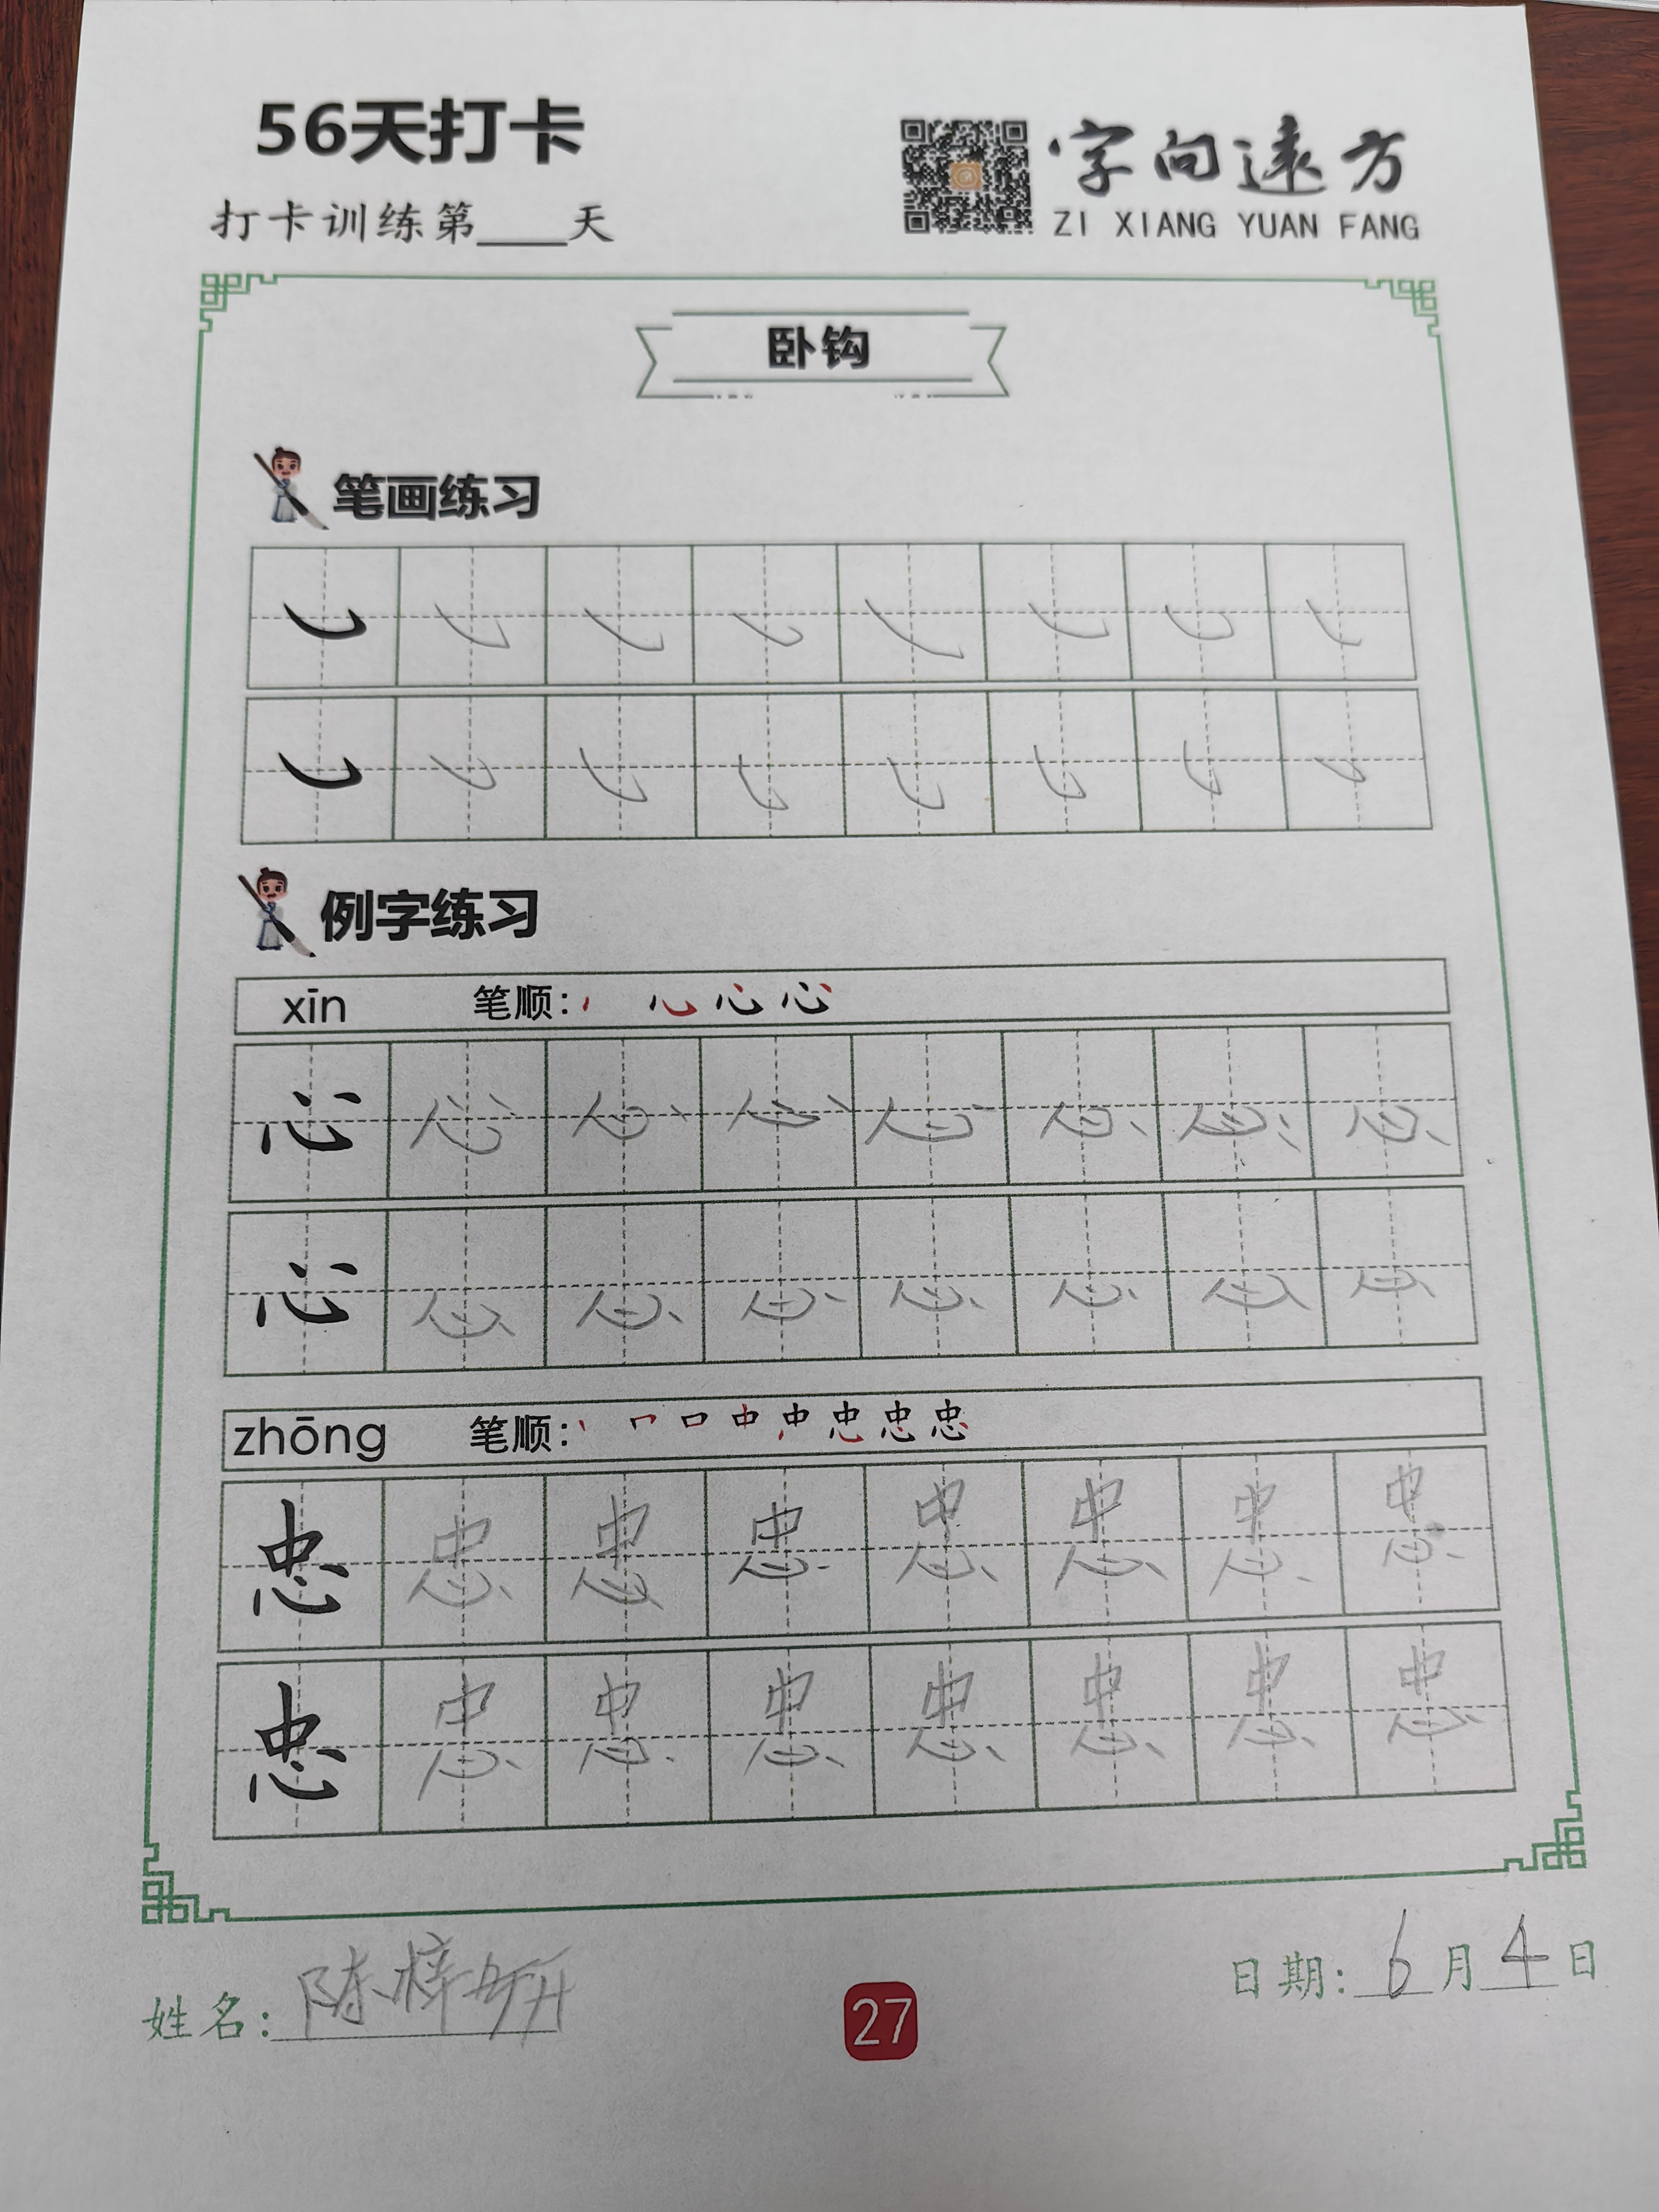 56天打卡
打卡训练第____天
字向远方
ZI XIANG YUAN FANG
卧钩
笔画练习
例字练习
xīn 笔顺:
心 心 心 心 心 心 心 心
心 心 心 心 心 心 心 心
zhōng 笔顺:
忠 忠 忠 忠 忠 忠 忠 忠
忠 忠 忠 忠 忠 忠 忠 忠
姓名: 陈梓妍
27
日期: 6月4日